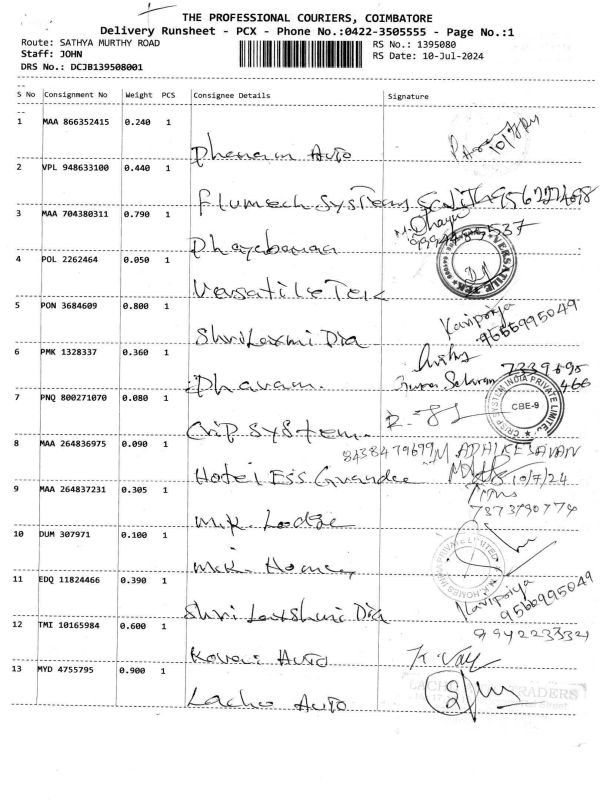 THE PROFESSIONAL COURIERS, COIMBATORE
Delivery Runsheet - PCX - Phone No.:0422-3505555 - Page No.:1
Route: SATHYA MURTHY ROAD
RS No.: 1395080
Staff: JOHN
RS Date: 10-Jul-2024
DRS No.: DCJB139508001
S No Consignment No Weight PCS Consignee Details Signature
1 MAA 866352415 0.240 1
Dhanam Auto 10/7/24
2 VPL 948633100 0.440 1
Flumech Systems
3 MAA 704380311 0.790 1
Dhayabaran
4 POL 2262464 0.050 1
Versatile Tek VERSATILE TEK
5 PON 3684609 0.800 1
Shri Laxmi Dia Kavipriya 9566995049
6 PMK 1328337 0.360 1
Dharam. 7339695466
7 PNQ 800271070 0.080 1
Crip System. CRISP SYSTEM INDIA PRIVATE LIMITED CBE-9
8 MAA 264836975 0.090 1
8438479699 M. ADHIKESAVAN
Hotel Ess Grandee 10/7/24
9 MAA 264837231 0.305 1
M.K. Lodge 7373790774
10 DUM 307971 0.100 1
M.K. Homes PRIVATE LIMITED
11 EDQ 11824466 0.390 1
Shri Lakshmi Dia Kavipriya 9566995049
12 TMI 10165984 0.600 1
9942233321
Kovai Auto
13 MYD 4755795 0.900 1
Lacho Auto TRADERS
Street